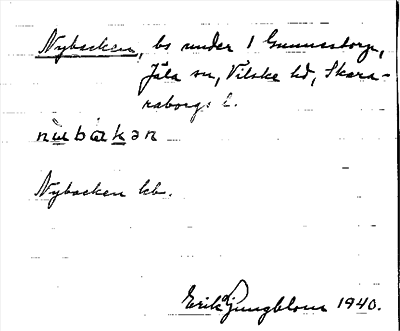 Nybacken, bs under 1 Gunnestorp,
Jäla sn, Vilske hd, Skara-
raborgs l.
nübakən
Nybacken kb.
Erik Ljungblom 1940.